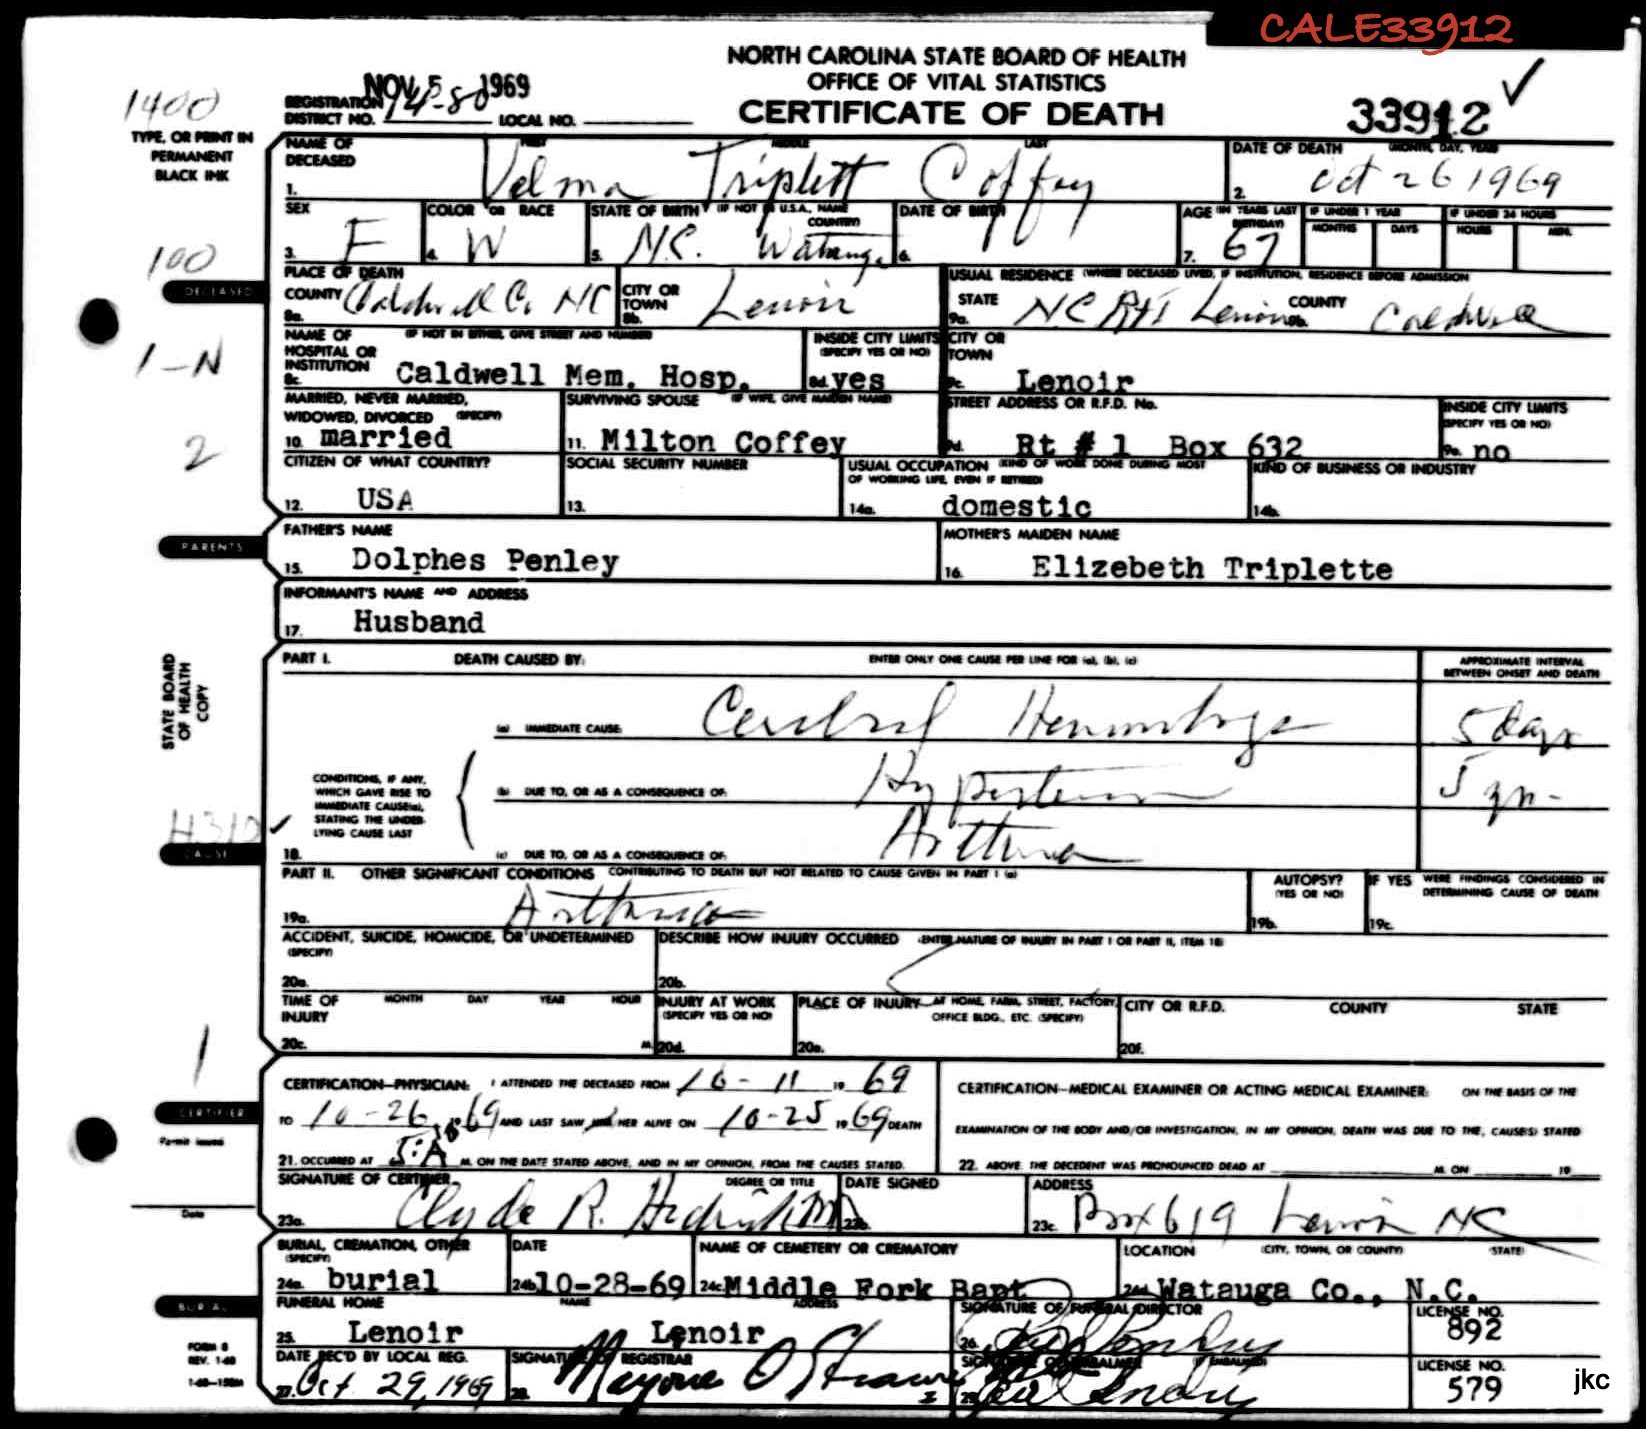 CALE33912
NORTH CAROLINA STATE BOARD OF HEALTH
OFFICE OF VITAL STATISTICS
CERTIFICATE OF DEATH
NOV 5 1969
33912 ✓
1400
REGISTRATION DISTRICT NO. 14-80 LOCAL NO.
TYPE, OR PRINT IN
PERMANENT
BLACK INK
NAME OF DECEASED FIRST MIDDLE LAST
1. Velma Triplett Coffey
DATE OF DEATH (MONTH, DAY, YEAR)
2. Oct 26 1969
SEX
3. F
COLOR OR RACE
4. W
STATE OF BIRTH (IF NOT IN U.S.A., NAME COUNTRY)
5. N.C. Watauga
DATE OF BIRTH
6.
AGE (IN YEARS LAST BIRTHDAY)
7. 67
IF UNDER 1 YEAR
MONTHS DAYS
IF UNDER 24 HOURS
HOURS MIN.
100
DECEASED
PLACE OF DEATH
COUNTY Caldwell Co. NC
8a.
CITY OR TOWN Lenoir
8b.
USUAL RESIDENCE (WHERE DECEASED LIVED, IF INSTITUTION, RESIDENCE BEFORE ADMISSION
STATE NC Rt 1 Lenoir
9a.
COUNTY Caldwell
9b.
1-N
NAME OF HOSPITAL OR INSTITUTION (IF NOT IN EITHER, GIVE STREET AND NUMBER)
8c. Caldwell Mem. Hosp.
INSIDE CITY LIMITS (SPECIFY YES OR NO)
8d. yes
CITY OR TOWN
9c. Lenoir
MARRIED, NEVER MARRIED, WIDOWED, DIVORCED (SPECIFY)
10. married
SURVIVING SPOUSE (IF WIFE, GIVE MAIDEN NAME)
11. Milton Coffey
STREET ADDRESS OR R.F.D. No.
9d. Rt # 1 Box 632
INSIDE CITY LIMITS (SPECIFY YES OR NO)
9e. no
2
CITIZEN OF WHAT COUNTRY?
12. USA
SOCIAL SECURITY NUMBER
13.
USUAL OCCUPATION (KIND OF WORK DONE DURING MOST OF WORKING LIFE, EVEN IF RETIRED)
14a. domestic
KIND OF BUSINESS OR INDUSTRY
14b.
PARENTS
FATHER'S NAME
15. Dolphes Penley
MOTHER'S MAIDEN NAME
16. Elizebeth Triplette
INFORMANT'S NAME AND ADDRESS
17. Husband
STATE BOARD
OF HEALTH
COPY
PART I. DEATH CAUSED BY: ENTER ONLY ONE CAUSE PER LINE FOR (a), (b), (c)
APPROXIMATE INTERVAL BETWEEN ONSET AND DEATH
(a) IMMEDIATE CAUSE: Cerebral Hemorrhage 5 days
CONDITIONS, IF ANY,
WHICH GAVE RISE TO
IMMEDIATE CAUSE(a),
STATING THE UNDER-
LYING CAUSE LAST
(b) DUE TO, OR AS A CONSEQUENCE OF: Hypertension 5 yrs.
18. (c) DUE TO, OR AS A CONSEQUENCE OF: Asthma
CAUSE
PART II. OTHER SIGNIFICANT CONDITIONS CONTRIBUTING TO DEATH BUT NOT RELATED TO CAUSE GIVEN IN PART I (a)
19a. Asthma
AUTOPSY? (YES OR NO)
19b.
IF YES WERE FINDINGS CONSIDERED IN DETERMINING CAUSE OF DEATH
19c.
ACCIDENT, SUICIDE, HOMICIDE, OR UNDETERMINED (SPECIFY)
20a.
DESCRIBE HOW INJURY OCCURRED (ENTER NATURE OF INJURY IN PART I OR PART II, ITEM 18)
20b.
TIME OF INJURY MONTH DAY YEAR HOUR
20c. M.
INJURY AT WORK (SPECIFY YES OR NO)
20d.
PLACE OF INJURY—AT HOME, FARM, STREET, FACTORY, OFFICE BLDG., ETC. (SPECIFY)
20e.
CITY OR R.F.D. COUNTY STATE
20f.
1
CERTIFIER
CERTIFICATION—PHYSICIAN: I ATTENDED THE DECEASED FROM 10-11 19 69
TO 10-26 19 69 AND LAST SAW HER ALIVE ON 10-25 19 69 DEATH
21. OCCURRED AT 5:A M. ON THE DATE STATED ABOVE, AND IN MY OPINION, FROM THE CAUSES STATED.
CERTIFICATION—MEDICAL EXAMINER OR ACTING MEDICAL EXAMINER: ON THE BASIS OF THE
EXAMINATION OF THE BODY AND/OR INVESTIGATION, IN MY OPINION, DEATH WAS DUE TO THE, CAUSE(S) STATED
22. ABOVE. THE DECEDENT WAS PRONOUNCED DEAD AT M. ON 19
Permit issued
Date
SIGNATURE OF CERTIFIER DEGREE OR TITLE
23a. Clyde R. Hedrick MD
DATE SIGNED
23b.
ADDRESS
23c. Box 619 Lenoir NC
BURIAL, CREMATION, OTHER (SPECIFY)
24a. burial
DATE
24b. 10-28-69
NAME OF CEMETERY OR CREMATORY
24c. Middle Fork Bapt
LOCATION (CITY, TOWN, OR COUNTY) (STATE)
24d. Watauga Co., N.C.
BURIAL
FUNERAL HOME NAME ADDRESS
25. Lenoir Lenoir
SIGNATURE OF FUNERAL DIRECTOR
26.
LICENSE NO.
892
FORM 8
REV. 1-68
DATE REC'D BY LOCAL REG.
27. Oct. 29, 1969
SIGNATURE OF REGISTRAR
28.
SIGNATURE OF EMBALMER (IF EMBALMED)
29.
LICENSE NO.
579
jkc